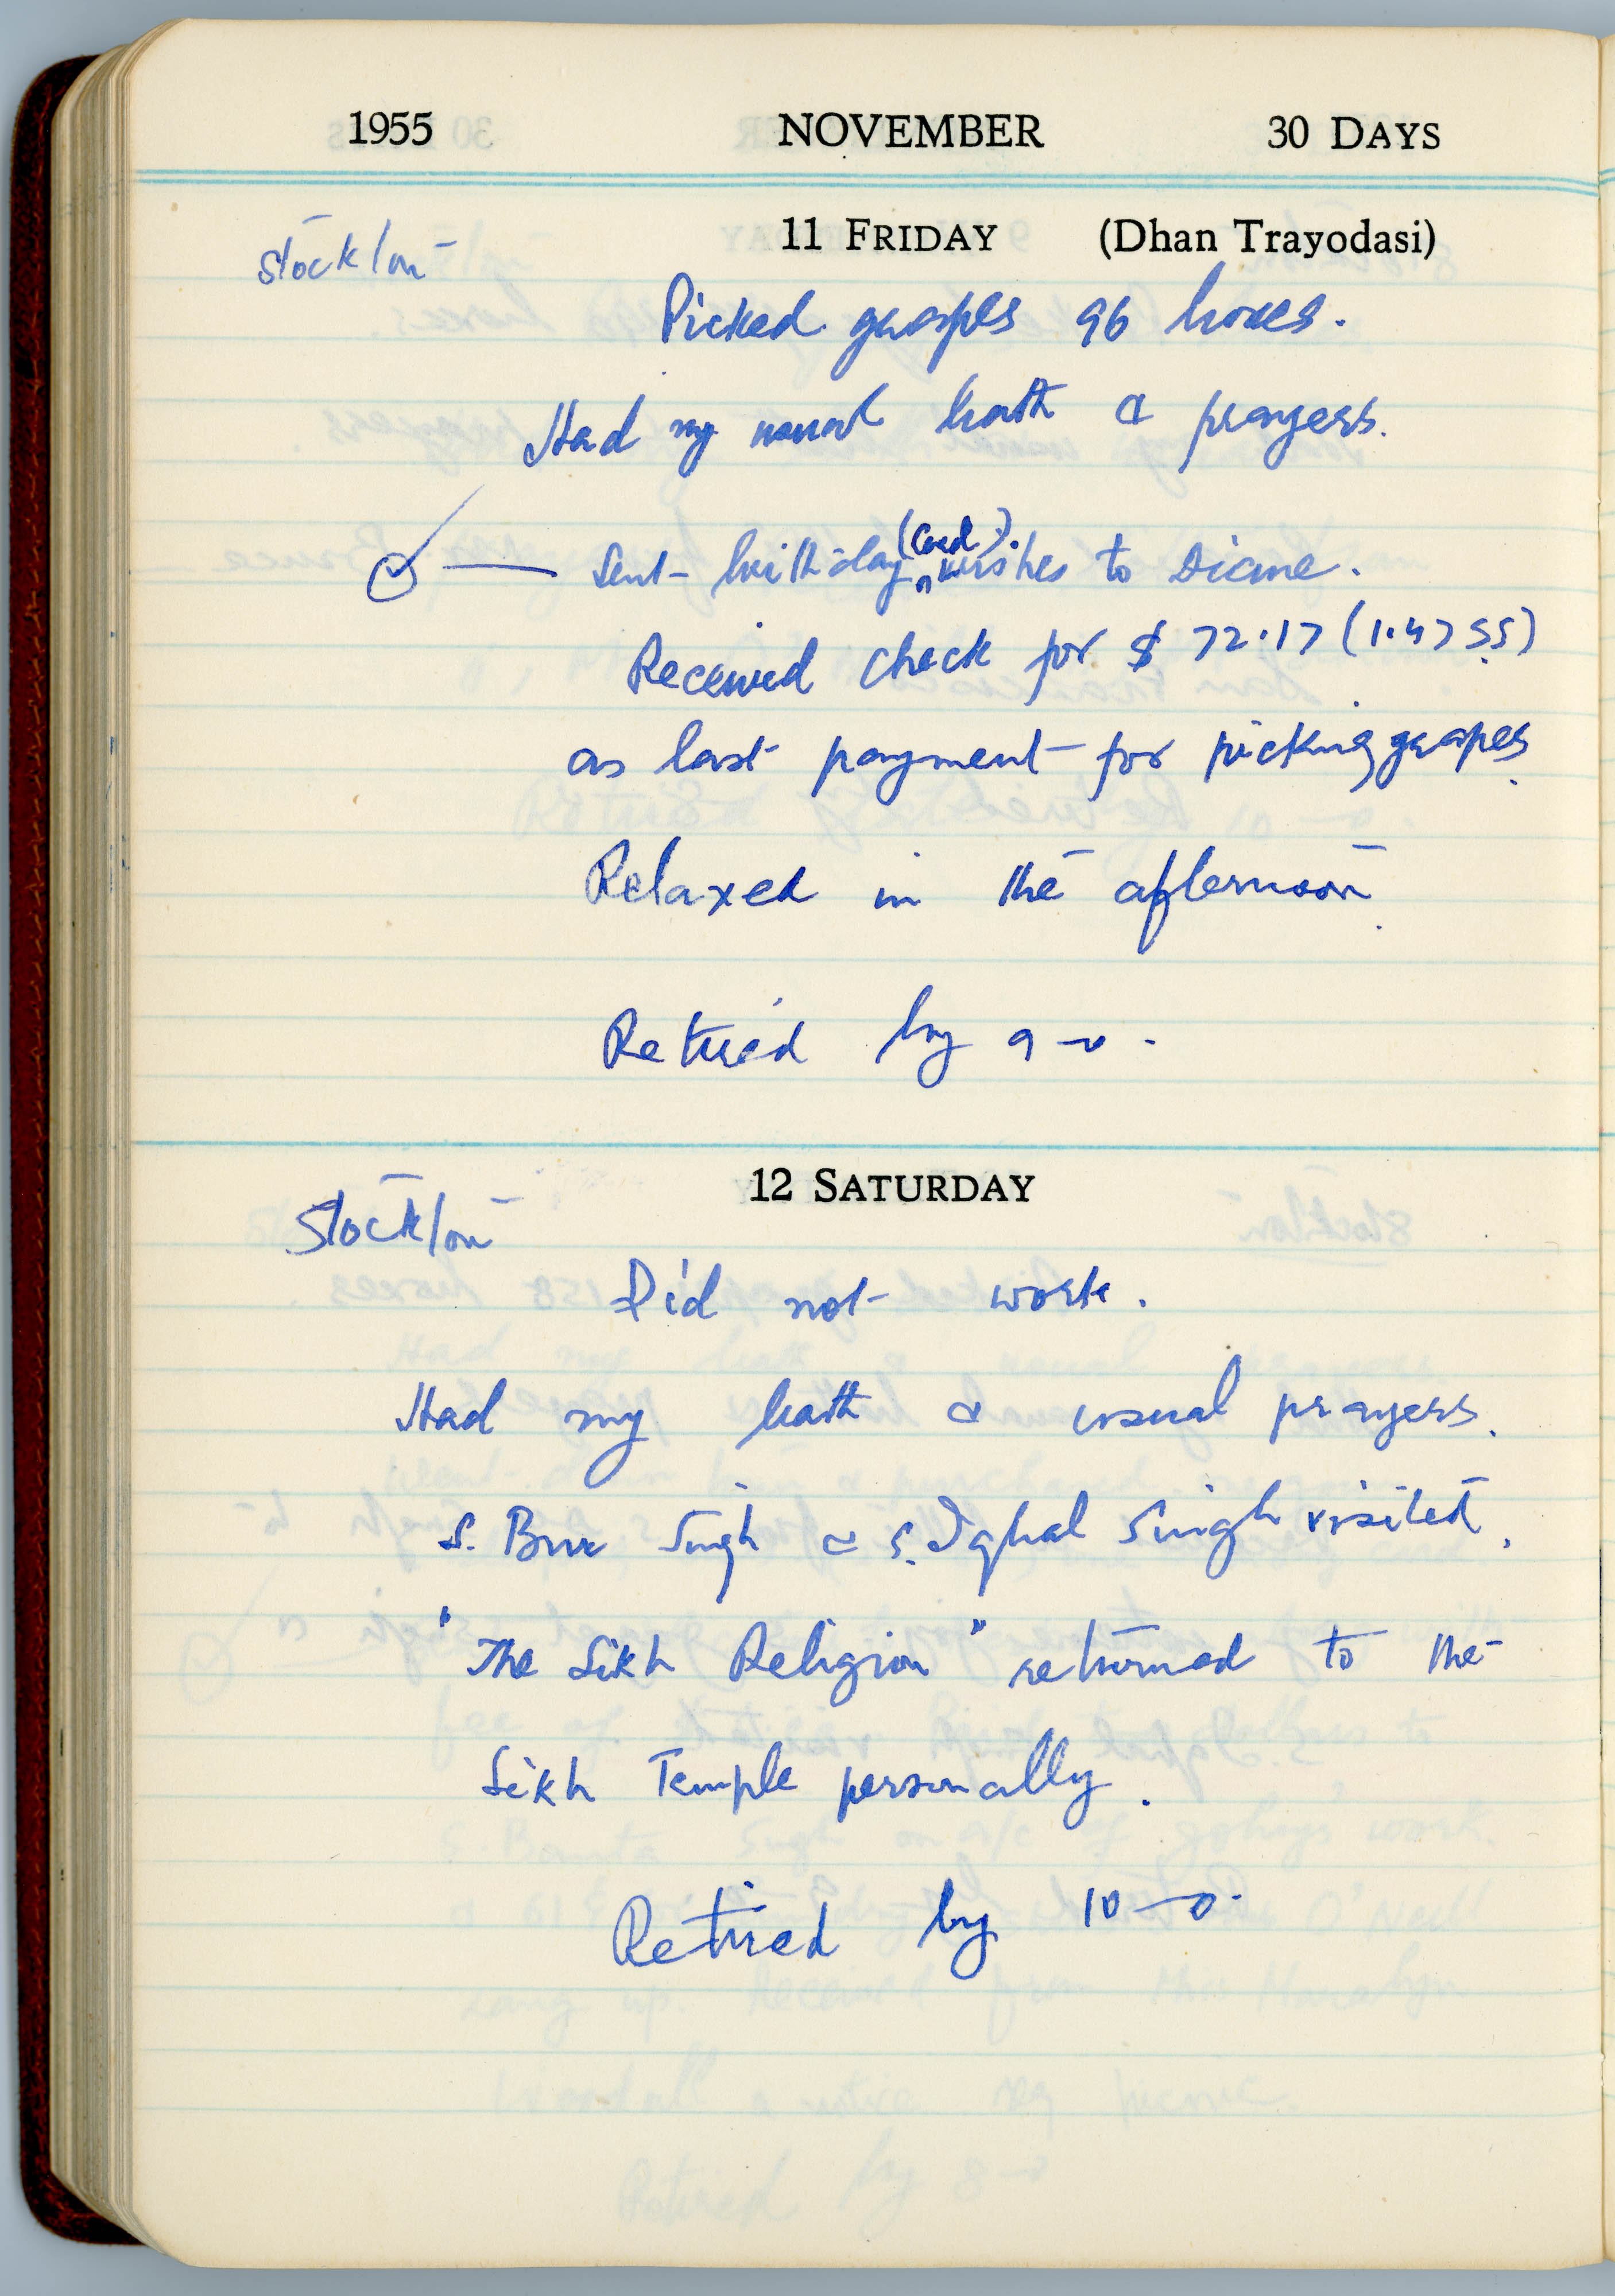 1955 NOVEMBER 30 DAYS
11 FRIDAY (Dhan Trayodasi)
Stockton
Picked grapes 96 boxes.
Had my usual bath & prayers.
Sent birthday (Card). wishes to Diane.
Received check for $ 72.17 (1.47 SS)
as last payment for picking grapes.
Relaxed in the afternoon.
Retired by 9-0.
12 SATURDAY
Stockton
Did not work.
Had my bath & usual prayers.
S. Bur Singh & S. Iqbal Singh visited.
"The Sikh Religion" returned to the
Sikh Temple personally.
Retired by 10-0.